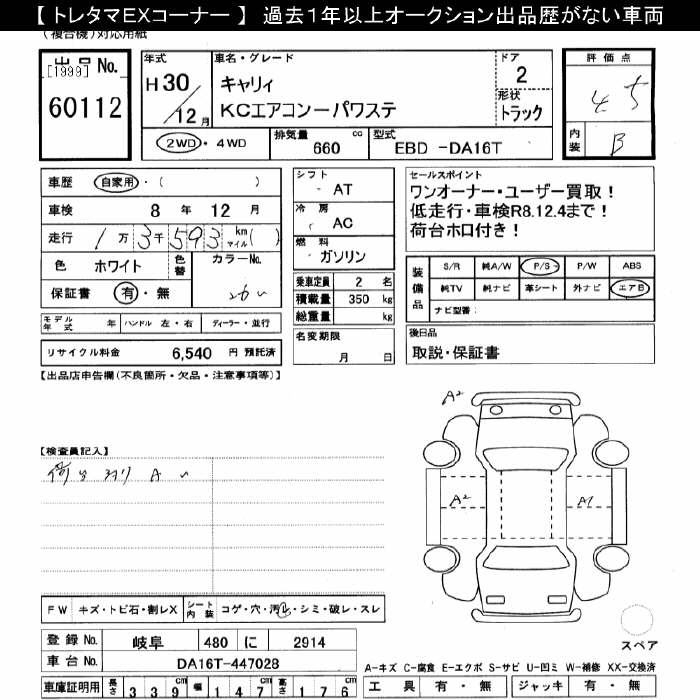 【 トレタマEXコーナー 】 過去1年以上オークション出品歴がない車両
(複合機)対応用紙
出品 No.
[1999]
60112
年式 H30/12月
車名・グレード
キャリィ
KCエアコンーパワステ
ドア 2
形状 トラック
評価点 4.5
内装 B
2WD・4WD
排気量 660 cc
型式 EBD -DA16T
車歴 自家用・( )
車検 8年 12月
走行 1万3千593 km マイル( )
色 ホワイト 色替
カラーNo. 26U
保証書 有・無
モデル年式 年 ハンドル 左・右 ディーラー・並行
リサイクル料金 6,540 円 預託済
シフト AT
冷房 AC
燃料 ガソリン
乗車定員 2 名
積載量 350 kg
総重量 kg
名変期限
月 日
セールスポイント
ワンオーナー・ユーザー買取！
低走行・車検R8.12.4まで！
荷台ホロ付き！
装備品
S/R 純A/W P/S P/W ABS
純TV 純ナビ 革シート 外ナビ エアB
ナビ型番:
後日品
取説・保証書
【出品店申告欄(不良箇所・欠品・注意事項等)】
【検査員記入】
荷台 コリ A U
A2
A2
A1
FW キズ・トビ石・割レX
シート内装 コゲ・穴・汚レ・シミ・破レ・スレ
スペア
登録 No. 岐阜 480 に 2914
車台 No. DA16T-447028
A-キズ C-腐食 E-エクボ S-サビ U-凹ミ W-補修 XX-交換済
車庫証明用 長さ 339cm 幅 147 高さ 176
工具 有・無 ジャッキ 有・無